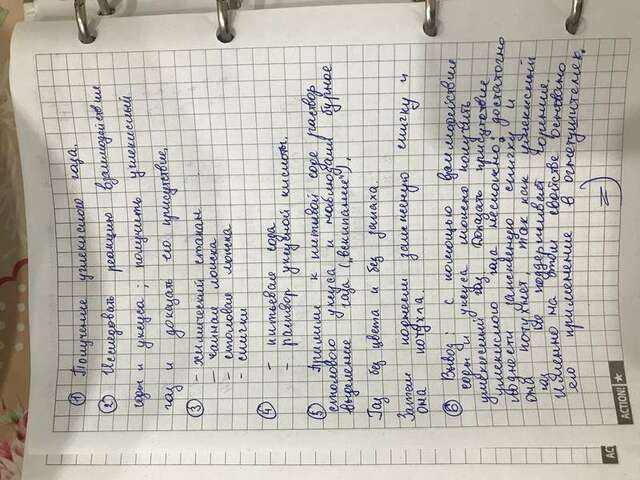 ① Получение углекислого газа.
② Исследовать реакцию взаимодействия
соды и уксуса; получить углекислый
газ и доказать его присутствие.
③ - химический стакан
- чайная ложка
- столовая ложка
- спички
④ - питьевая сода
- раствор уксусной кислоты.
⑤ Прилили к питьевой соде раствор
столового уксуса и наблюдали бурное
выделение газа ("вскипание").
Газ без цвета и без запаха.
Затем поднесли зажженную спичку и
она потухла.
⑥ Вывод: с помощью взаимодействия
соды и уксуса можно получить
углекислый газ. Доказать присутствие
углекислого газа несложно, достаточно
поднести зажженную спичку и
она потухнет, так как углекислый
газ не поддерживает горение.
Именно на этом свойстве основано
его применение в огнетушителях.
=)
ACTION!
AC